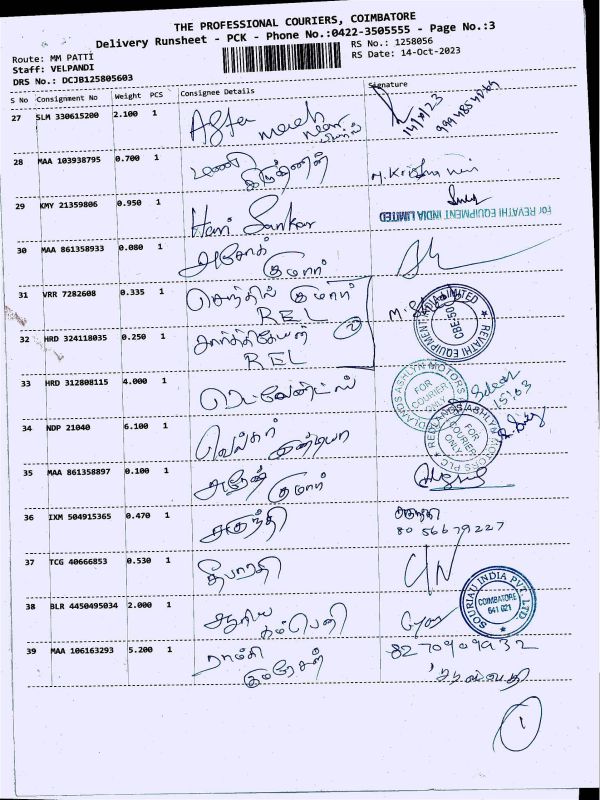 THE PROFESSIONAL COURIERS, COIMBATORE
Delivery Runsheet - PCK - Phone No.:0422-3505555 - Page No.:3
Route: MM PATTI
Staff: VELPANDI
DRS No.: DCJB125805603
RS No.: 1258056
RS Date: 14-Oct-2023
S No Consignment No Weight PCS Consignee Details Signature
27 SLM 330615200 2.100 1 After
14/10/23
28 MAA 103938795 0.700 1 மணி
29 KMY 21359806 0.950 1 Hari Sankar
for REVATHI EQUIPMENT INDIA LIMITED
30 MAA 861358933 0.080 1 அசோக்
குமார்
31 VRR 7282608 0.335 1 செந்தில் குமார்
REL
REVATHI EQUIPMENT INDIA LIMITED
CBE-50
32 HRD 324118035 0.250 1 கார்த்திகேயன்
REL
2
33 HRD 312808115 4.000 1
REDLANDS ASHLYN MOTORS
FOR COURIER ONLY
34 NDP 21040 6.100 1
இண்டியா
REDLANDS ASHLYN MOTORS PLC
FOR COURIER ONLY
35 MAA 861358897 0.100 1 அருண்
குமார்
36 IXM 504915365 0.470 1 அருந்ததி
80 56679227
37 TCG 40666853 0.530 1 தீபாரதி
38 BLR 4450495034 2.000 1 ஆரிய
கம்பெனி
SOURIAU INDIA PVT. LTD
COIMBATORE
641 021
39 MAA 106163293 5.200 1 ராம்கி
குமரேசன்
8270909932
1